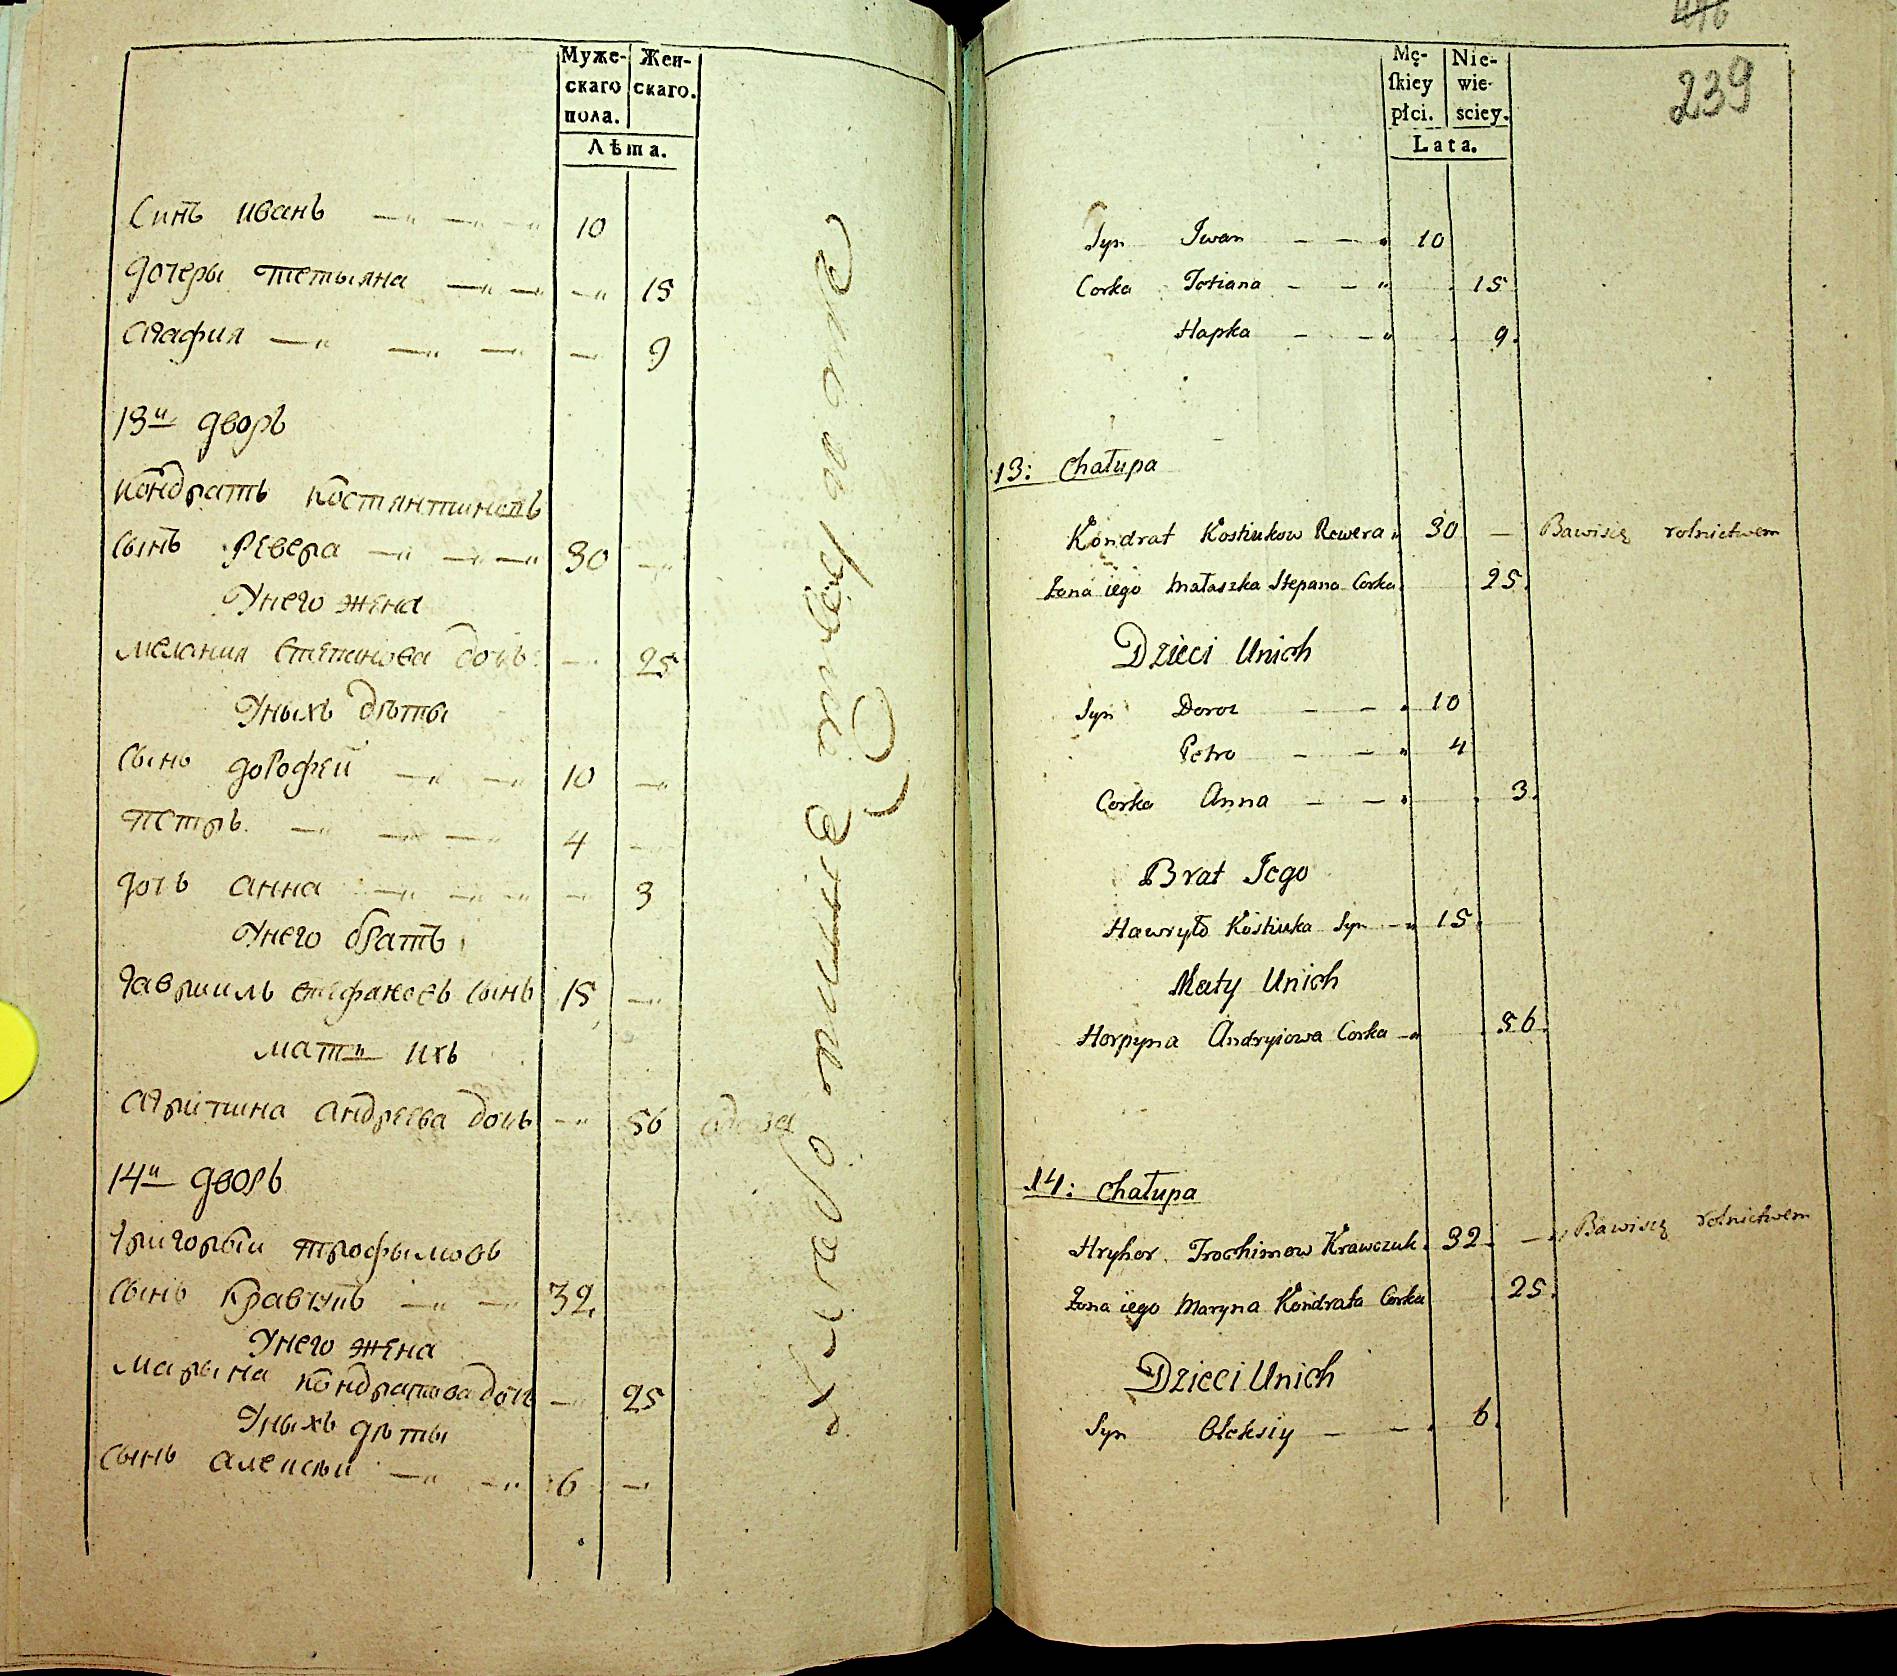 Муже-
скаго
пола.
Жен-
скаго.
Лѣта.
Синъ иванъ 10
дочеры тетыяна 15
агафия 9
13й дворъ
кондратъ костянтиновъ
сынъ Ревера 30
Унего жена
мелания степанова дочь 25
Уныхъ дѣты
сынъ дорофей 10
петръ 4
дочь анна 3
Унего братъ
гавриилъ стефановъ сынъ 15
мати ихъ
агрипина андреева дочь 56 вдова
14й дворъ
григорый трофымовъ
сынъ кравчукъ 32
Унего жена
марына кондратова дочь 25
Уныхъ дѣты
сынъ алексѣй 6
239
Mę-
ſkiey
płci.
Nie-
wie-
sciey.
Lata.
Syn Jwan 10
Corka Totiana 15
Hapka 9
13: Chałupa
Kondrat Kostiukow Rewera 30 Bawisię rolnictwem
Zona iego Małaszka Stepana Corka 25
Dzieci Unich
Syn Doroz 10
Petro 4
Corka Anna 3
Brat Jego
Hawryło Kostiuka Syn 15
Maty Unich
Horpyna Andryiowa Corka 56
14: Chałupa
Hryhor Trochimow Krawczuk 32 Bawisię rolnictwem
Zona iego Maryna Kondrata Corka 25
Dzieci Unich
Syn Oleksiy 6